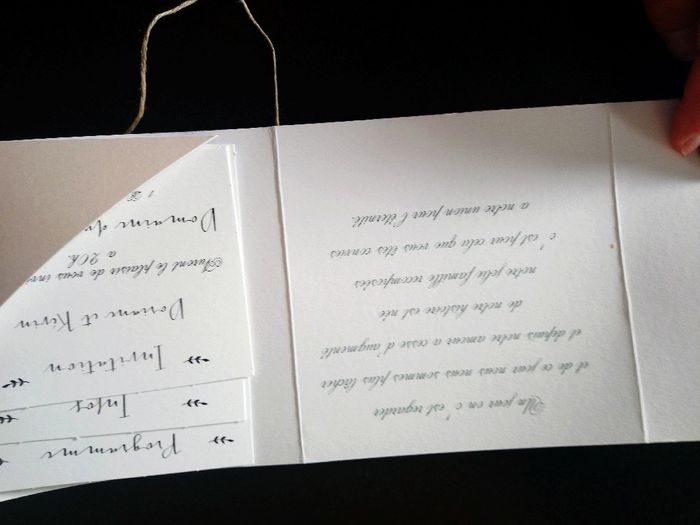 Un jour on c'est regarder
et de ce jour nous sommes plus lâcher
et depuis notre amour a cesse d'augmenté
de notre histoire est née
notre jolie famille recomposées
c'est pour cela que vous êtes convies
a notre union pour l'éternité.
Programme
Infos
Invitation
Doriane et Kévin
Auront le plaisir de vous
a 20h
Domaine